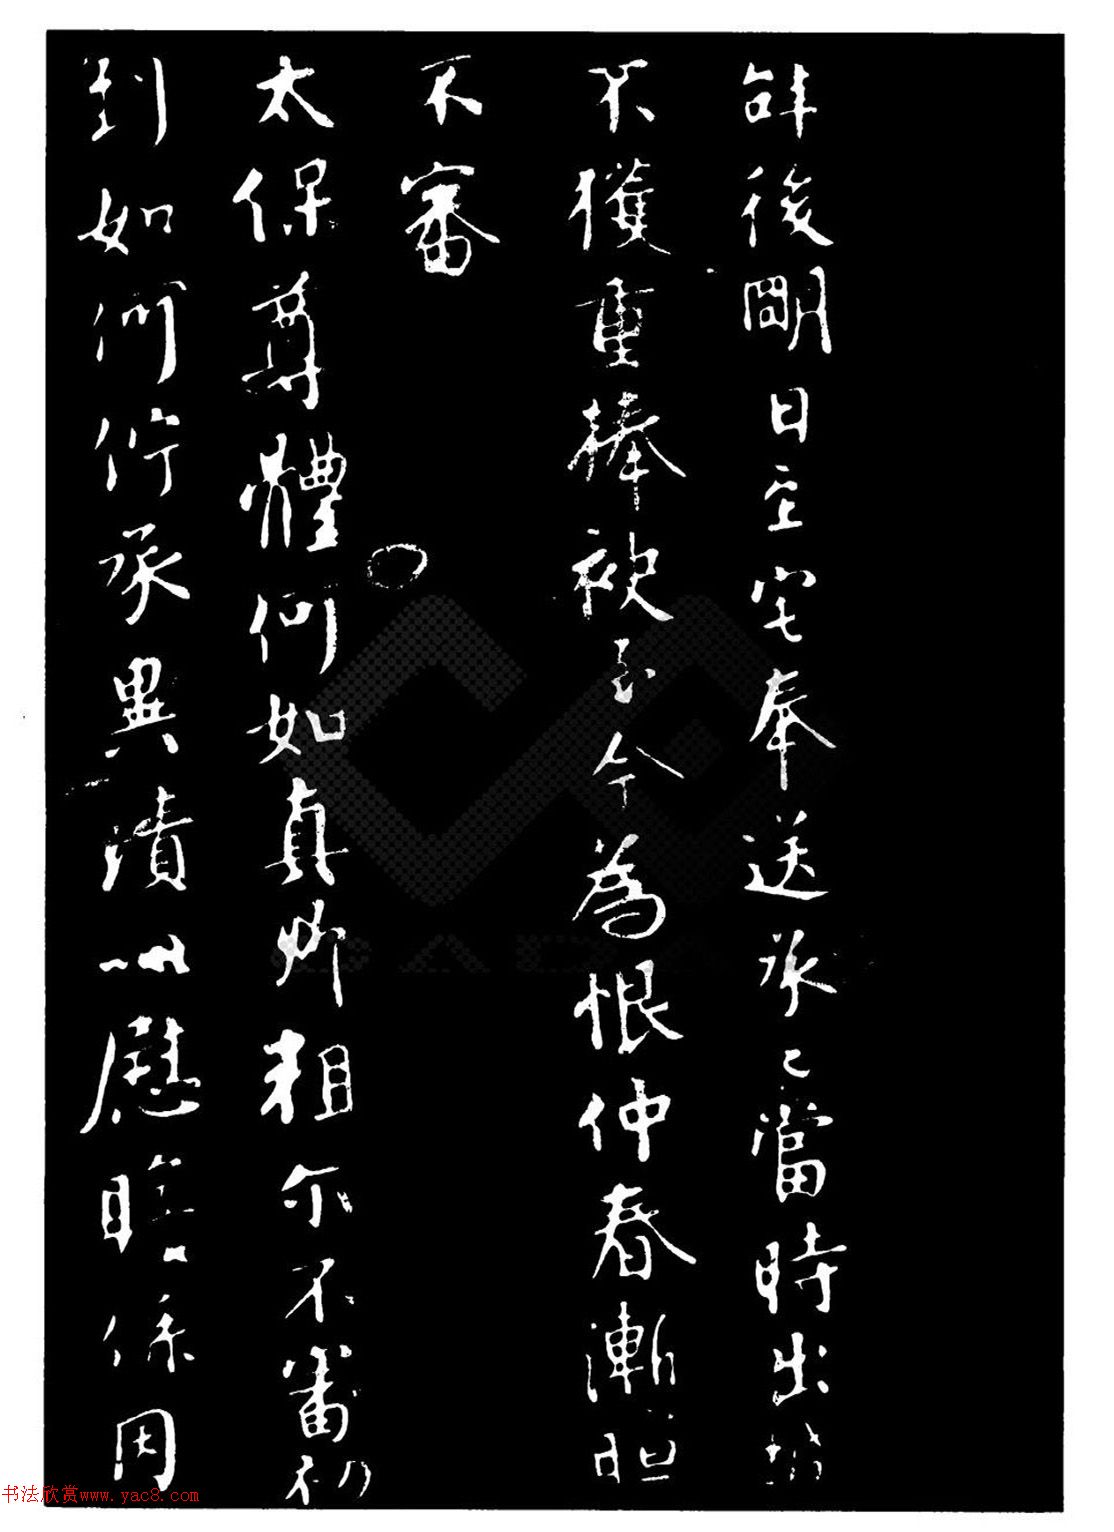 辞後明日至宅奉送承已當時出城
不獲重捧袂至今為恨仲春漸暄
不審
太保尊體何如真卿粗尔不審初
到如何佇承異績以慰瞻係因
书法欣赏www.yac8.com